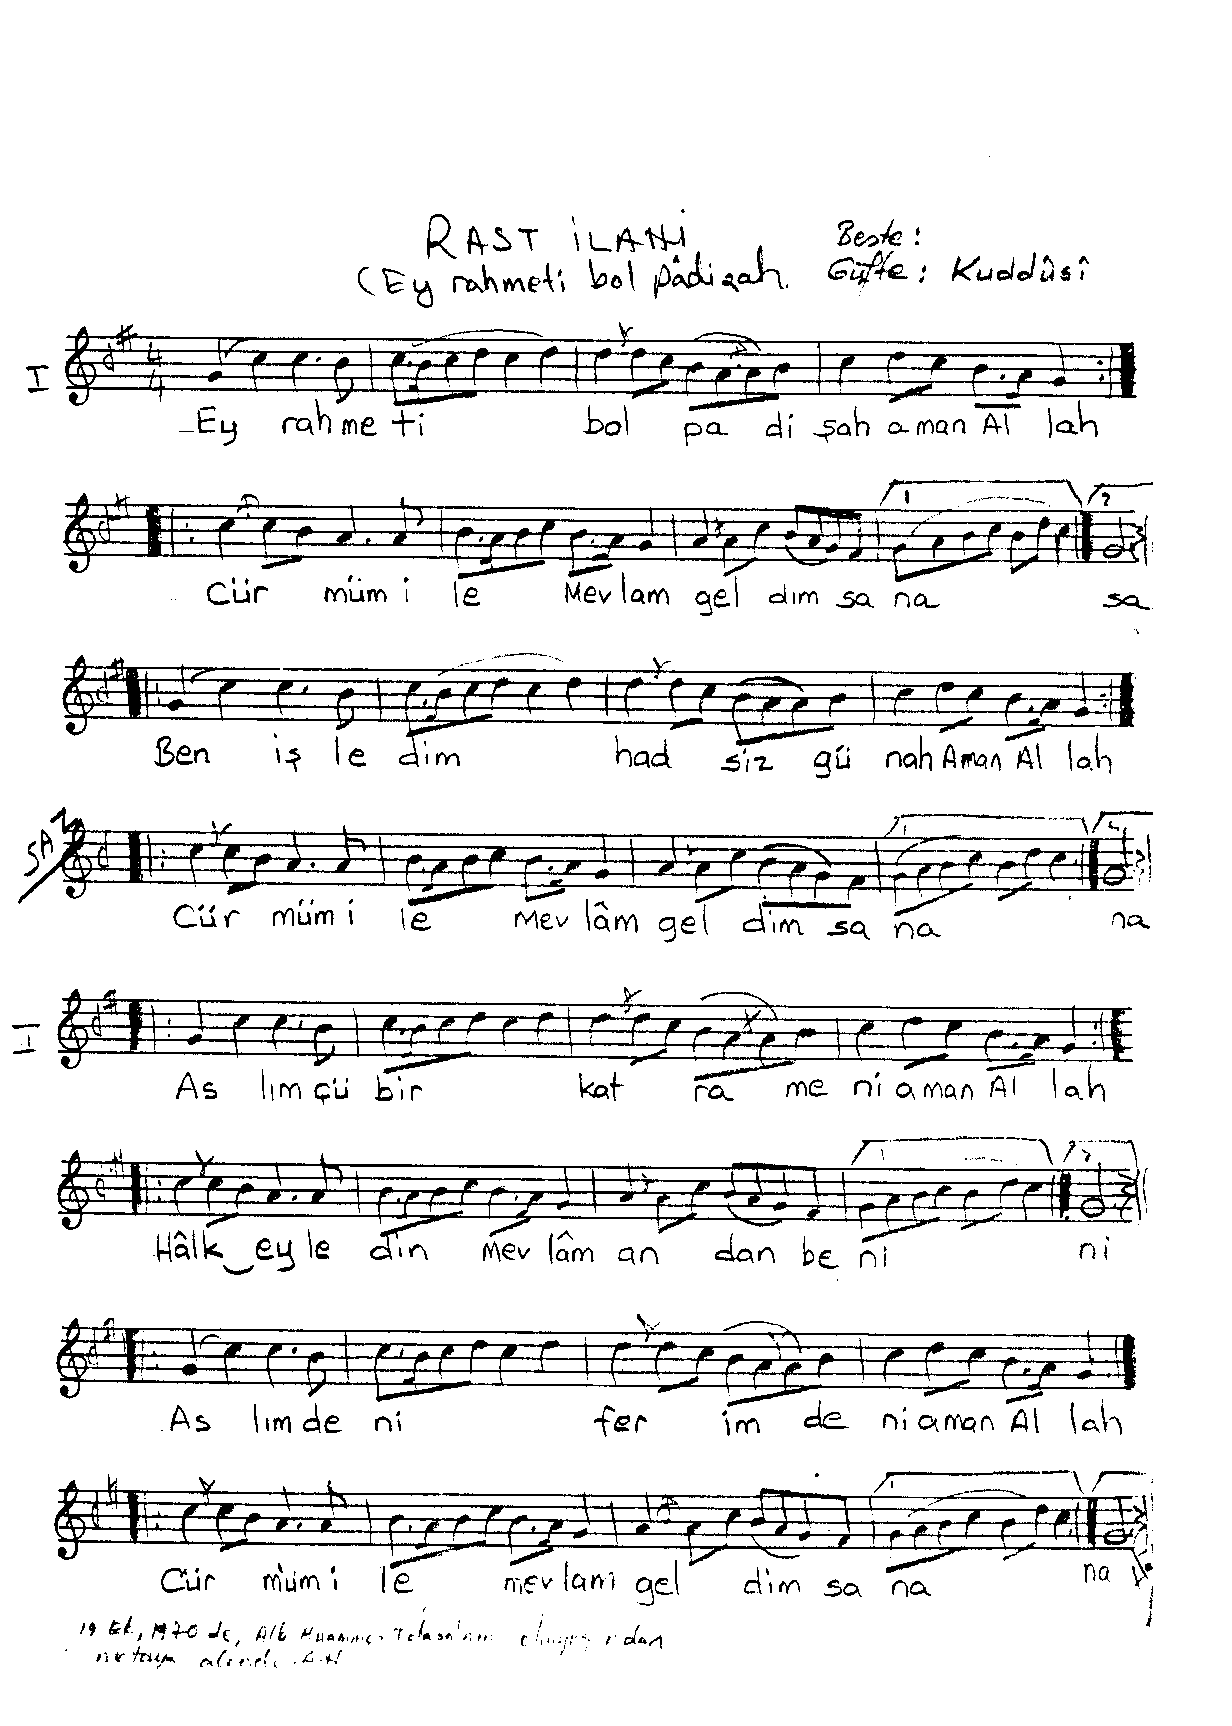 RAST İLAHİ
Beste:
(Ey rahmeti bol pâdişah.
Güfte: Kuddûsî
I
4
4
Ey rahmeti bol pa di şah aman Al lah
1 2
Cür müm i le Mevlam gel dım sa na sa
Ben iş le dim had siz gü nah Aman Al lah
SAZ
Cür müm i le Mev lâm gel dim sa na na
I
As lım çü bir kat ra me ni aman Al lah
Hâlk ey le din Mev lâm an dan be ni ni
As lım de ni fer im de ni aman Al lah
Cür müm i le mev lam gel dim sa na na
19 Ek, 1970 de,